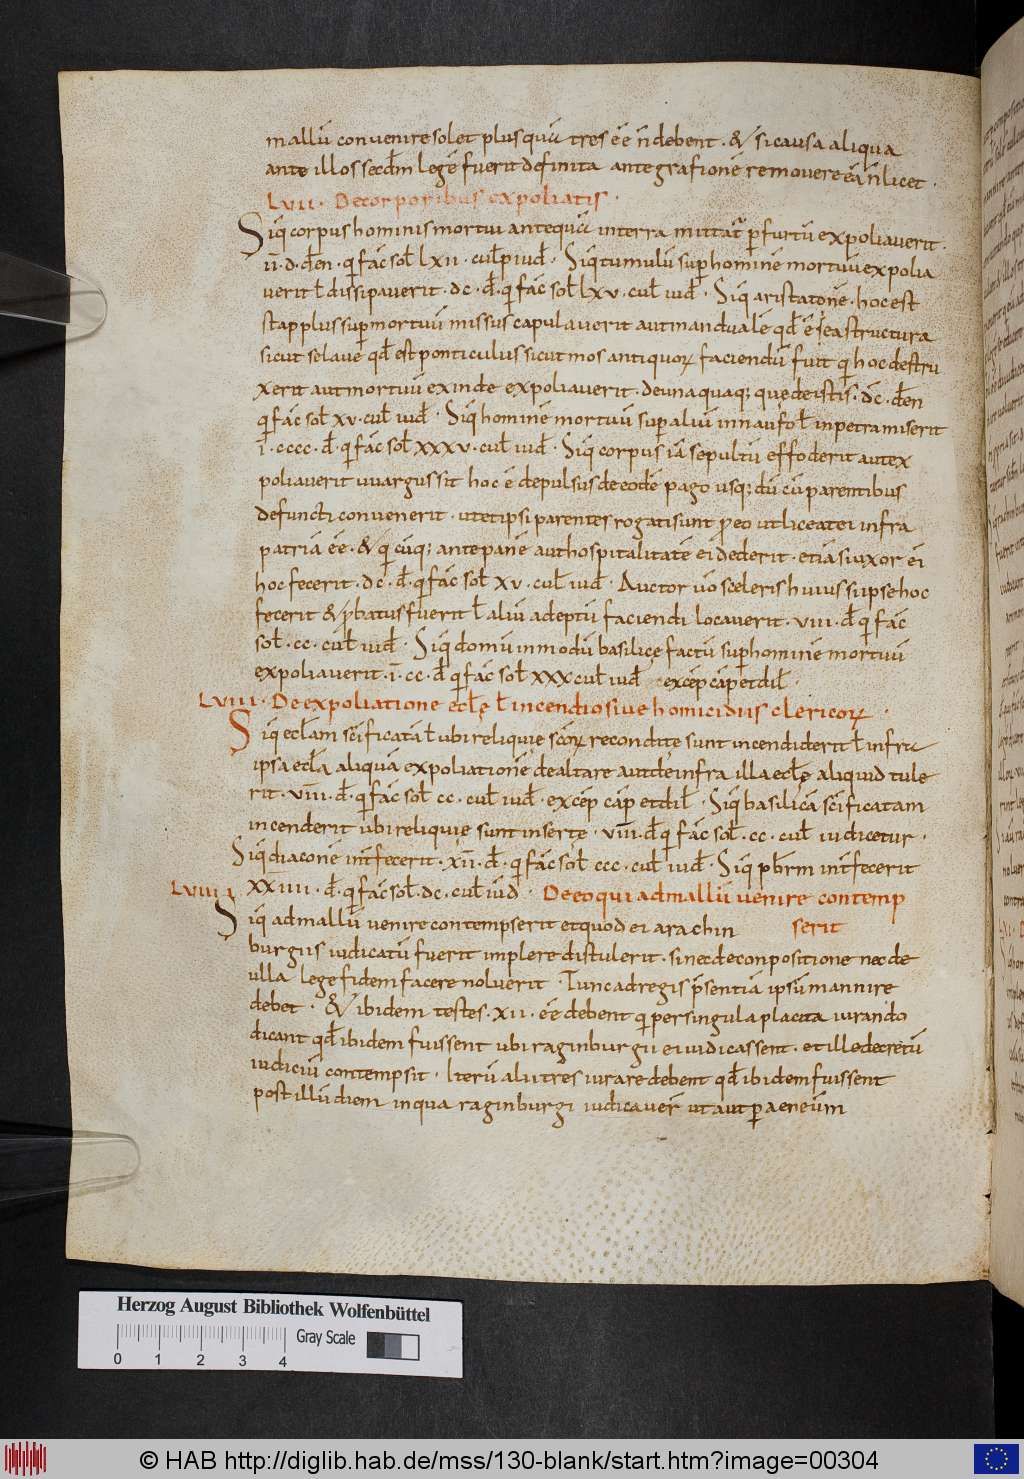 mallū convenire solet plus quā tres eē n̄ debent · & si causa aliqua
ante illos secdm̄ legē fuerit definita ante grafionē removere eā n̄ licet ·
LVII · De corporibus expoliatis ·
Siq̄ corpus hominis mortui ante quā in terra mittat̄ ꝑ furtū expoliaverit ·
II̅ · D · den̄ · q̄ fac̄ sol̄ LXII · culp̄ iud̄ · Siq̄ tumulū sup̄ hominē mortuū expolia
verit ł dissipaverit · DC · d̄ · q̄ fac̄ sol̄ XV · cul̄ iud̄ · Siq̄ aristatonē · hoc est
stapplus sup̄ mortuū missus capulaverit aut mandualē qd̄ ē ea structura
sicut selave qd̄ est ponticulus sicut mos antiquoꝝ faciendū fuit q̄ hoc destru
xerit aut mortuū exinde expoliaverit · de unaquaq; que de istis · DC · den̄
q̄ fac̄ sol̄ XV · cul̄ iud̄ · Siq̄ hominē mortuū sup̄ aliū in naufo ł in petra miserit
I̅ · CCCC · d̄ · q̄ fac̄ sol̄ XXXV · cul̄ iud̄ · Siq̄ corpus iā sepultū effoderit aut ex
poliaverit uuargus sit hoc ē depulsus de eodē pago usq; dū cū parentibus
defuncti convenerit · ut et ipsi parentes rogati sunt ꝓ eo ut liceat ei infra
patriā eē · & q̄ cūq; ante panē aut hospitalitatē ei dederit · etiā si uxor ei
hoc fecerit · DC · d̄ · q̄ fac̄ sol̄ XV · cul̄ iud̄ · Auctor ūo sceleris huius si ipse hoc
fecerit & ꝓbatus fuerit ł aliū adeptū faciendi locaverit · VIII · d̄ q̄ fac̄
sol̄ · CC · cul̄ iud̄ · Siq̄ domū in modū basilicę factū sup̄ hominē mortuū
expoliaverit · I̅ · CC · d̄ q̄ fac̄ sol̄ XXX cul̄ iud̄ excep̄ cap̄ et dil̄ ·
LVIII · De expoliatione eclę̄ ł incendio sive homicidiis clericoꝝ ·
Siq̄ ecl̄am sc̄ificatā ł ubi reliquie sc̄oꝝ recondite sunt incendiderit ł infra
ipsa ecl̄a aliquā expoliationē de altare aut de infra illa eclę̄ aliquid tule
rit · VIII̅ · d̄ · q̄ fac̄ sol̄ CC · cul̄ iud̄ · excep̄ cap̄ et dil̄ · Siq̄ basilicā sc̄ificatam
incenderit ubi reliquię sunt insertę · VIII̅ · d̄ q̄ fac̄ sol̄ · CC · cul̄ iudicetur ·
Siq̄ diaconē int̄fecerit · XII̅ · d̄ · q̄ fac̄ sol̄ CCC · cul̄ iud̄ · Siq̄ pb̄rm int̄fecerit
XXIIII · d̄ · q̄ fac̄ sol̄ · DC · cul̄ iud̄ ·
LVIIII De eo qui ad mallū venire contemp
serit
Siq̄ ad mallū venire contempserit et quod ei a rachin
burgiis iudicatū fuerit implere distulerit · si nec de conpositione nec de
ulla lege fidem facere noluerit · Tunc ad regis p̄sentiā ipsū mannire
debet · & ibidem testes · XII · eē debent q̄ per singula placita iurando
dicant qd̄ ibidem fuissent ubi raginburgii ei iudicassent · et ille decretū
iudiciū contempsit · Iterū alii tres iurare debent qd̄ ibidem fuissent
post illū diem in qua raginburgi iudicaver̄ ut aut ꝑ aeneūm
Herzog August Bibliothek Wolfenbüttel
Gray Scale
0 1 2 3 4
© HAB http://diglib.hab.de/mss/130-blank/start.htm?image=00304